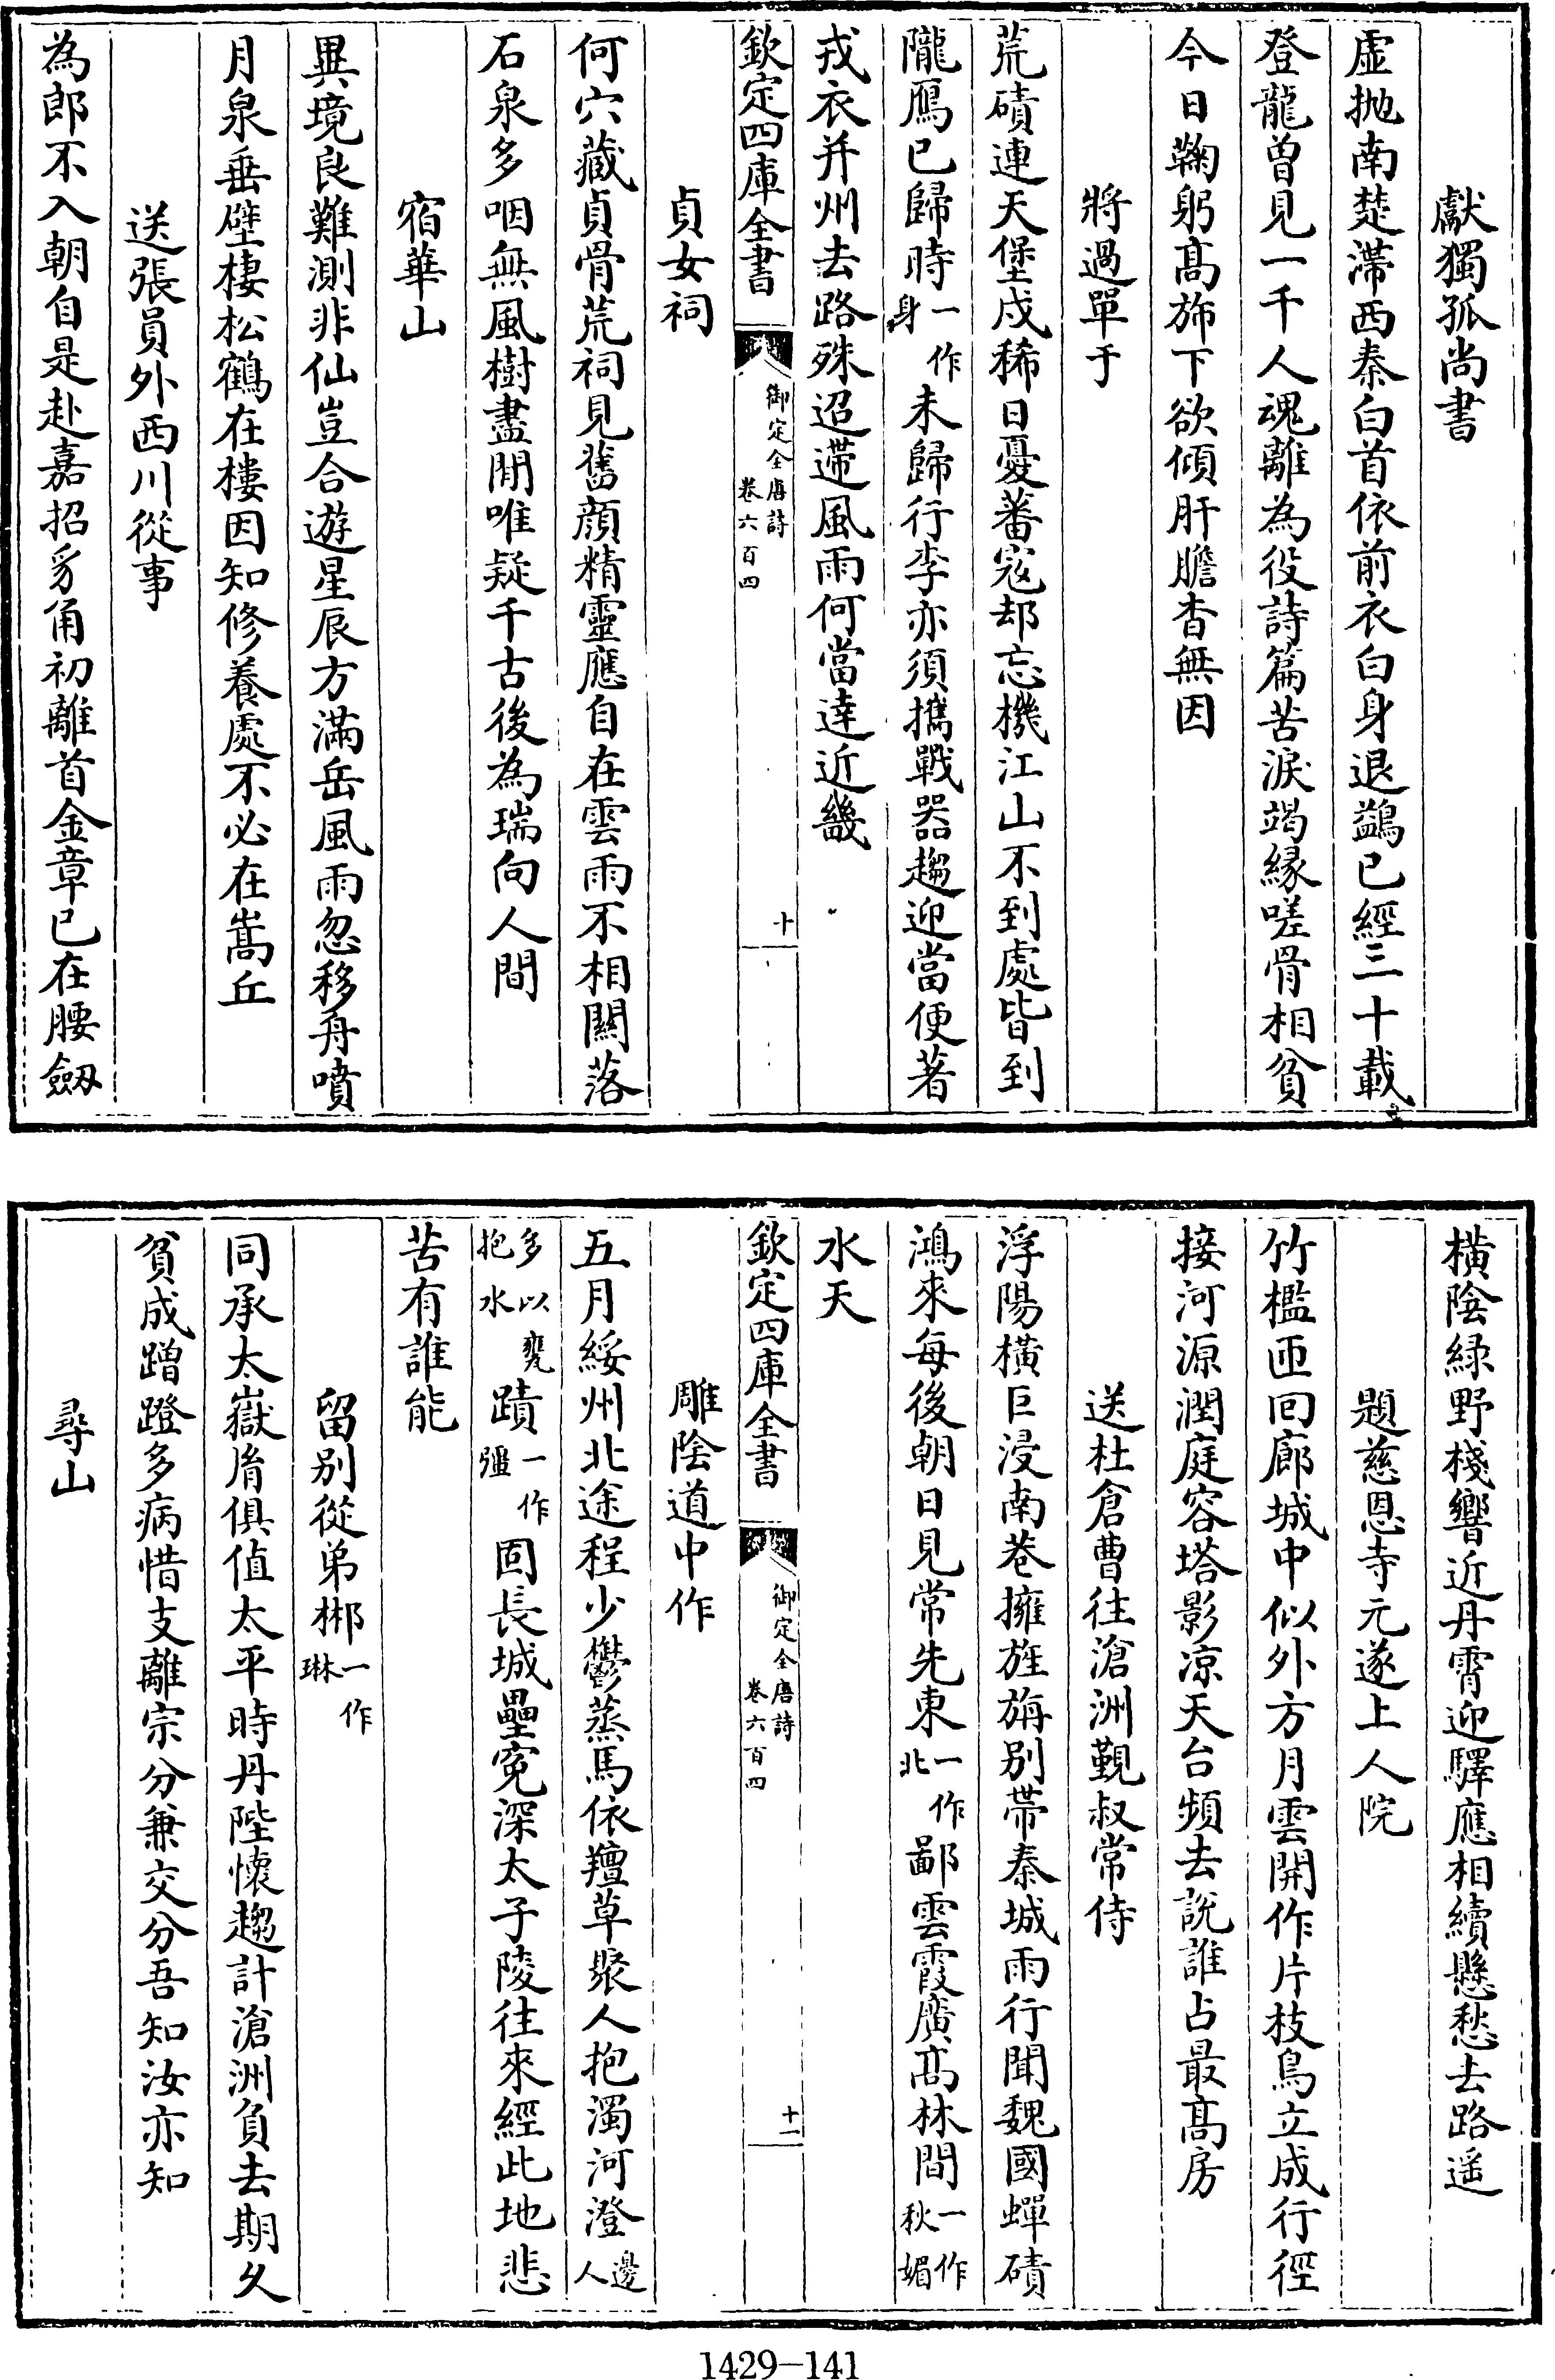 獻獨孤尚書
虛抛南楚滯西秦白首依前衣白身退鷁已經三十載
登龍曽見一千人魂離為役詩篇苦淚竭縁嗟骨相貧
今日鞠躬髙斾下欲傾肝膽杳無因
將過單于
荒磧連天堡戍稀日憂蕃宼却忘機江山不到處皆到
隴鴈已歸時一作身未歸行李亦須攜戰器趨迎當便著
戎衣并州去路殊迢遰風雨何當達近畿
欽定四庫全書
御定全唐詩
卷六百四
十
貞女祠
何穴藏貞骨荒祠見舊顔精靈應自在雲雨不相關落
石泉多咽無風樹盡閒唯疑千古後為瑞向人間
宿華山
異境良難測非仙豈合遊星辰方滿岳風雨忽移舟噴
月泉垂壁棲松鶴在樓因知修養處不必在嵩丘
送張員外西川從事
為郎不入朝自是赴嘉招豸角初離首金章已在腰劔
橫陰綠野棧響近丹霄迎驛應相續懸愁去路遥
題慈恩寺元遂上人院
竹檻匝回廊城中似外方月雲開作片枝鳥立成行徑
接河源潤庭容塔影凉天台頻去說誰占最髙房
送杜倉曹往滄洲覲叔常侍
浮陽橫巨浸南巷擁旌旃别帶秦城雨行聞魏國蟬磧
鴻來每後朝日見常先東一作北鄙雲霞廣髙林間一作秋媚
水天
欽定四庫全書
御定全唐詩
卷六百四
十一
雕陰道中作
五月綏州北途程少鬱蒸馬依羶草聚人抱濁河澄邊人
多以甕抱水蹟一作疆固長城壘寃深太子陵往來經此地悲
苦有誰能
留别從弟郴一作琳
同承太嶽胤俱值太平時丹陛懷趨計滄洲負去期久
貧成蹭蹬多病惜支離宗分兼交分吾知汝亦知
尋山
1429-141